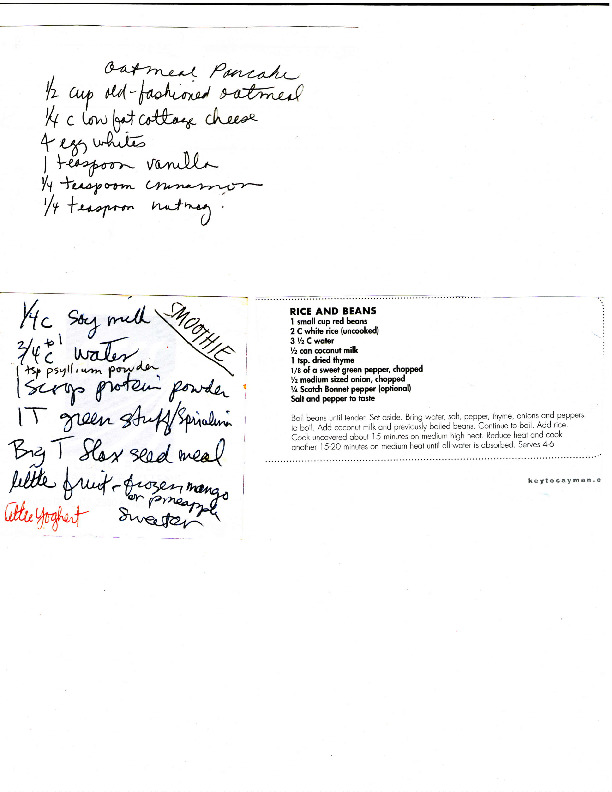 Oatmeal Pancake
1/2 cup old-fashioned oatmeal
1/4 c lowfat cottage cheese
4 egg whites
1 teaspoon vanilla
1/4 teaspoom cinnamon
1/4 teaspoon nutmeg.
SMOOTHIE
1/4 c soy milk
3/4 c water
1 tsp psyllium powder
1 scoop protein powder
1 T green stuff/Spirulina
Big T flax seed meal
little fruit - frozen mango
or pineapple
Sweeten
little Yoghert
RICE AND BEANS
1 small cup red beans
2 C white rice (uncooked)
3 ½ C water
½ can coconut milk
1 tsp. dried thyme
1/8 of a sweet green pepper, chopped
½ medium sized onion, chopped
¼ Scotch Bonnet pepper (optional)
Salt and pepper to taste
Boil beans until tender. Set aside. Bring water, salt, pepper, thyme, onions and peppers
to boil. Add coconut milk and previously boiled beans. Continue to boil. Add rice.
Cook uncovered about 15 minutes on medium high heat. Reduce heat and cook
another 15-20 minutes on medium heat until all water is absorbed. Serves 4-6
keytocayman.c